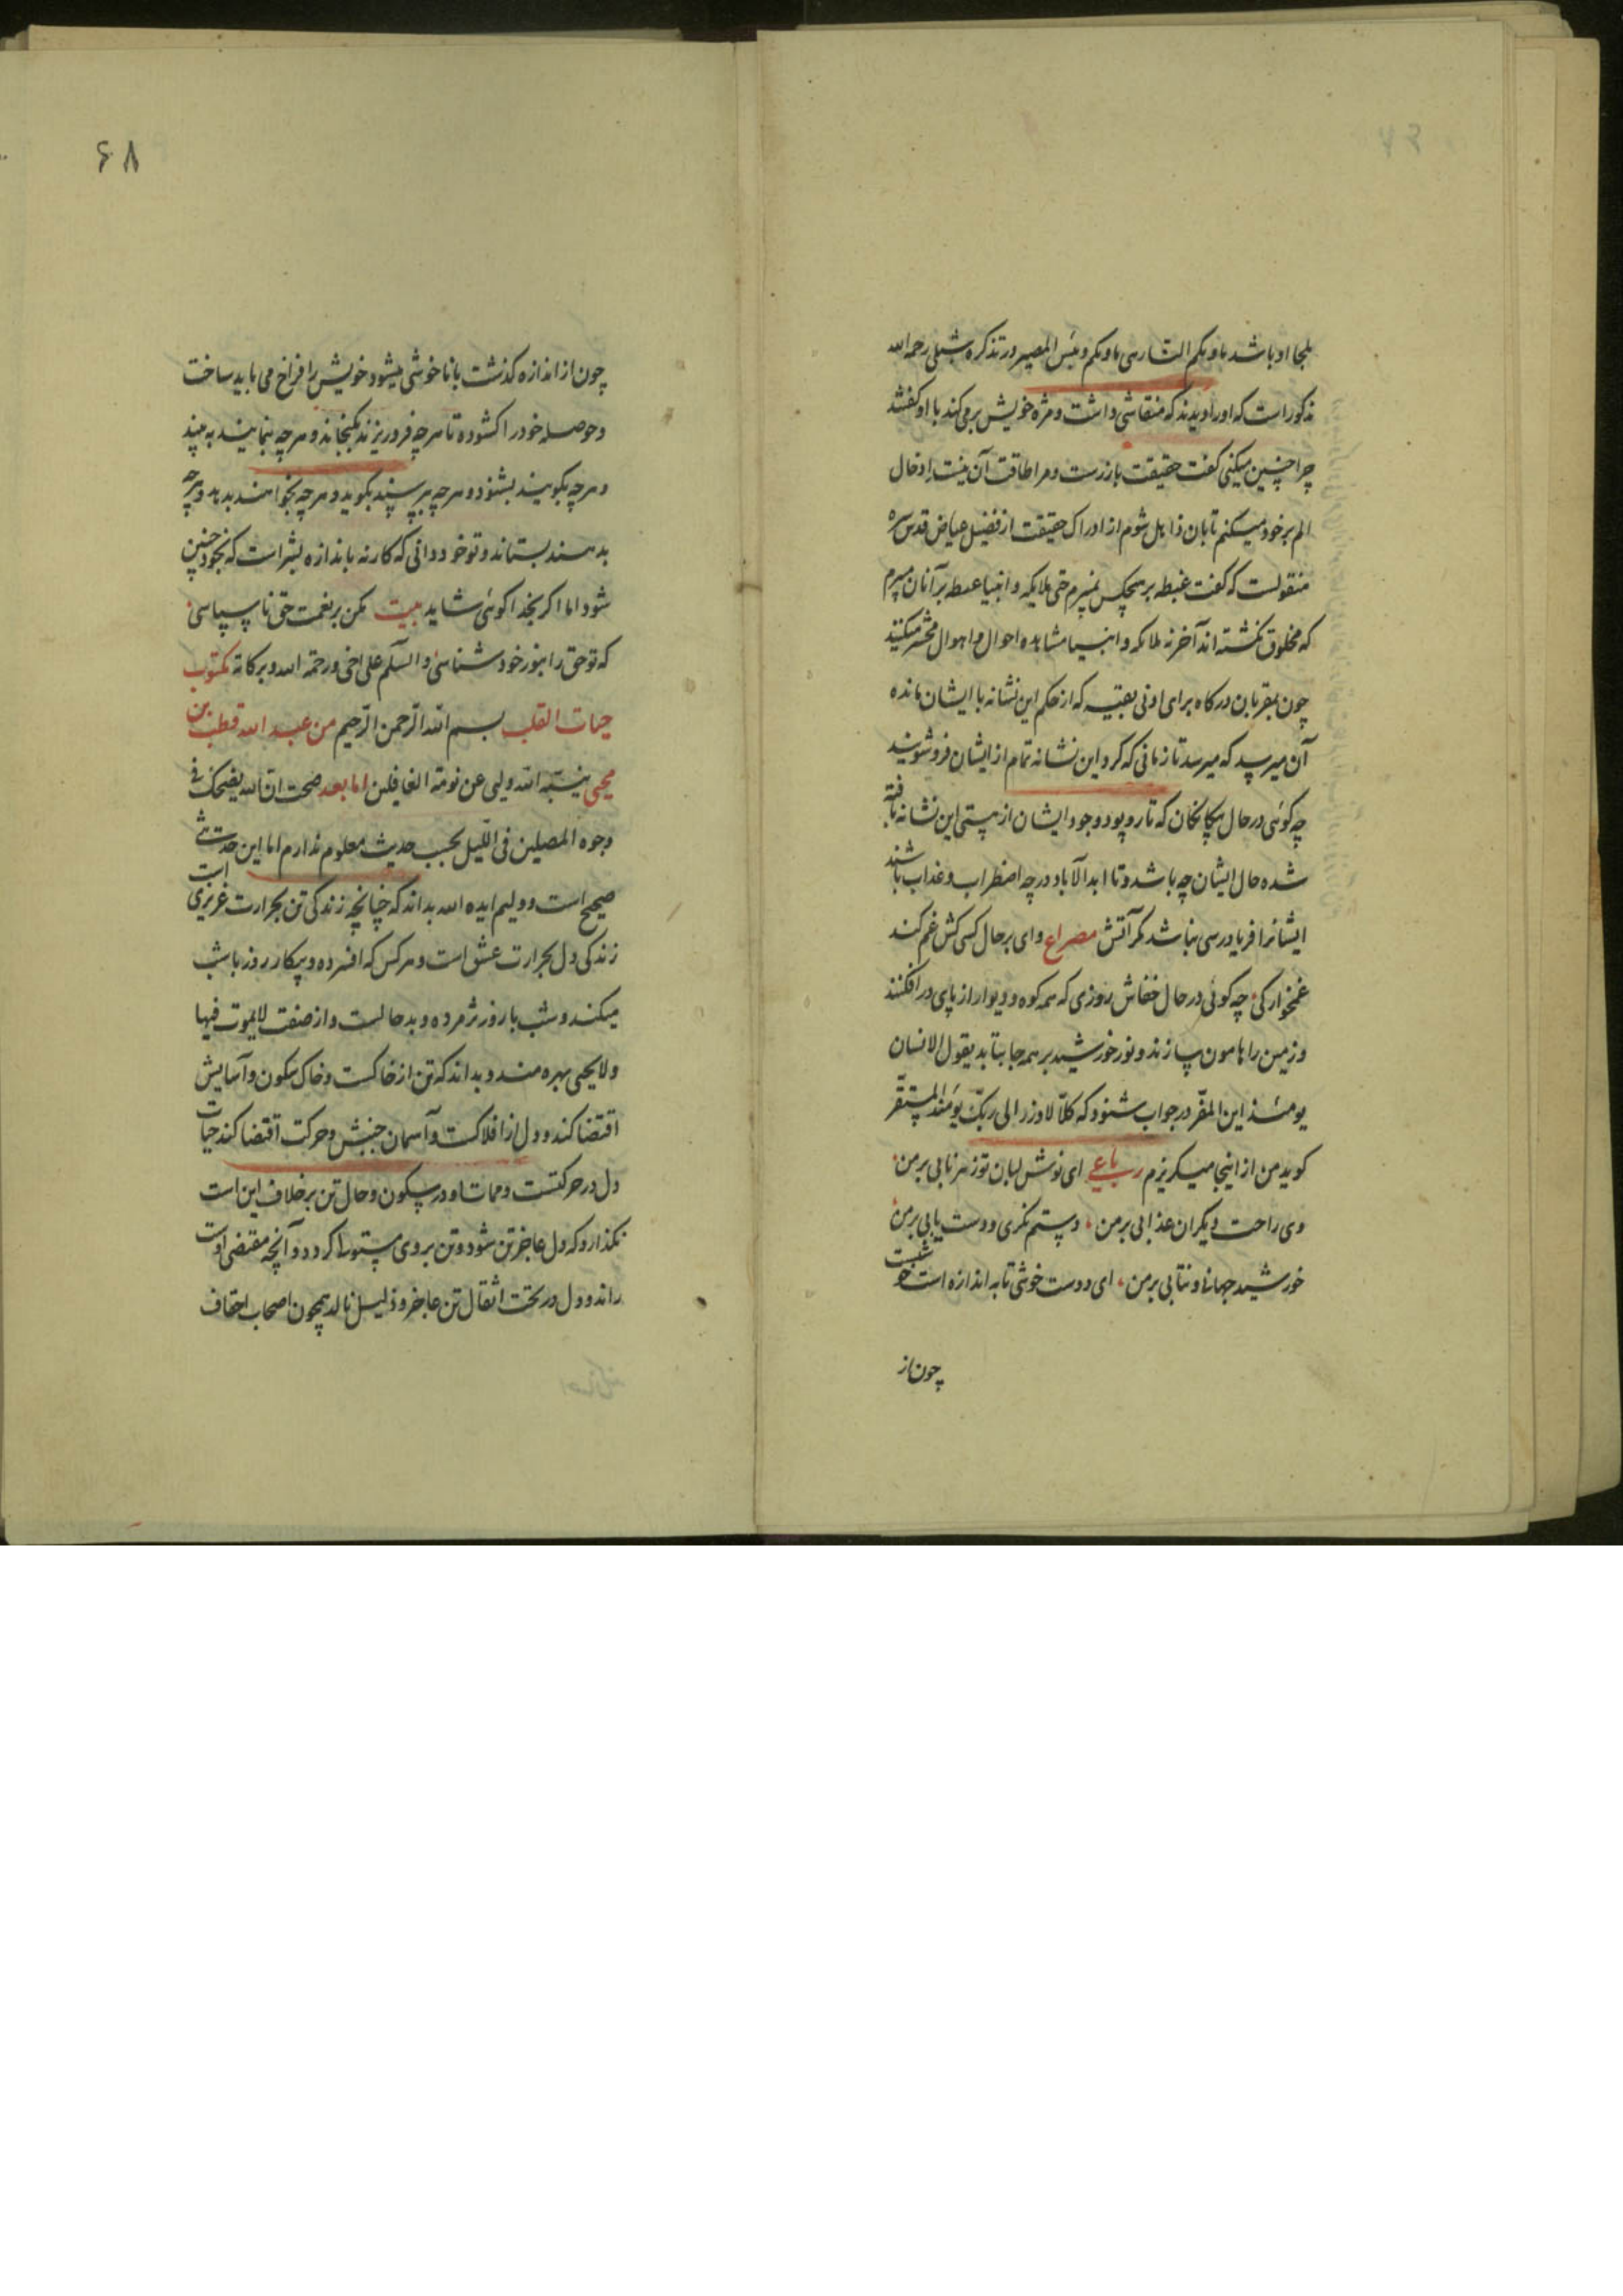 ملجا او باشد ماویکم النار هی ماویکم و بئس المصیر در تذکره شبلی رحمه الله
مذکور است که او را دیدند که منقاشی داشت و مژه خویش برمی کند با او گفتند
چرا چنین میکنی گفت حقیقت بارزست و مرا طاقت آن نیست ادخال
الم بر خود میکنم تا بان ذاهل شوم از ادراک حقیقت از فضیل عیاض قدس سره
منقولست که گفت غبطه بر هیچکس نمیبرم حتی ملایکه و انبیا غبطه بر آنان میبرم
که مخلوق نگشته اند آخر نه ملائکه و انبیا مشاهده احوال و اهوال محشر میکنند
چون بمقربان درکاه برای ادنی بقیه که از حکم این نشانه با ایشان مانده
آن میرسد که میرسد تا زمانی که کرد این نشانه تمام از ایشان فرو شویند
چه کوئی در حال بیکانکان که تار و پود وجود ایشان از هستی این نشانه بافته
شده حال ایشان چه باشد و تا ابد الآباد در چه اضطراب و عذاب باشند
ایشانرا فریادرسی نباشد مکر آتش مصراع وای بر حال کسی کش غم کند
غمخوارکی چه کوئی در حال خفاش روزی که همه کوه و دیوار از پای در افکنند
و زمین را هامون سازند و نور خورشید بر همه جا بتابد یقول الانسان
یومئذ این المفر در جواب شنود که کلا لا وزر الی ربک یومئذ المستقر
کوید من از اینجا میکریزم رباعی ای نوش لبان تو زهر نابی بر من
وی راحت دیکران عذابی بر من دستم نکری و دست یابی بر من
خورشید جهانی و نتابی بر من ای دوست خوشی تا به اندازه است خوشست
چون از
۶۸
چون از اندازه کذشت با ناخوشی میشود خویش را فراخ می باید ساخت
و حوصله خود را کشوده تا هر چه فرو ریزند بکنجاند و هر چه بنمایند به بیند
و هر چه بکویند بشنود و هر چه بپرسند بکوید و هر چه بخواهند بدهد و هر چه
بدهند بستاند و تو خود دانی که کار نه باندازه بشر است که بخود چنین
شود اما اکر بخدا کوئی شاید بیت مکن بر نعمت حق ناسپاسی
که تو حق را بنور خود شناسی و السلم علی اخی و رحمة الله و برکاته مکتوب
حیات القلب بسم الله الرحمن الرحیم من عبد الله قطب بن
محیی ینتبه الله ولیی عن نومة الغافلین اما بعد صحت ان الله یضحک فی
وجوه المصلین فی اللیل بحسب حدیث معلوم ندارم اما این حدیث
صحیح است و ولیم ایده الله بداند که چنانچه زندکی تن بحرارت غریزی است
زندکی دل بحرارت عشق است و هر کس که افسرده و بیکار روز با شب
میکند و شب با روز پژمرده و بد حالست و از صنف لا یموت فیها
و لا یحیی بهره مند و بداند که تن از خاکست و خاک سکون و آسایش
اقتضا کند و دل از افلاکست و آسمان جنبش و حرکت اقتضا کند حیات
دل در حرکتست و ممات او در سکون و حال تن بر خلاف این است
نکذارد که دل عاجز تن شود و تن بر وی مستولی کردد و آنچه مقتضی اوست
راند و دل در تحت اثقال تن عاجز و ذلیل نالد همچون اصحاب احقاف